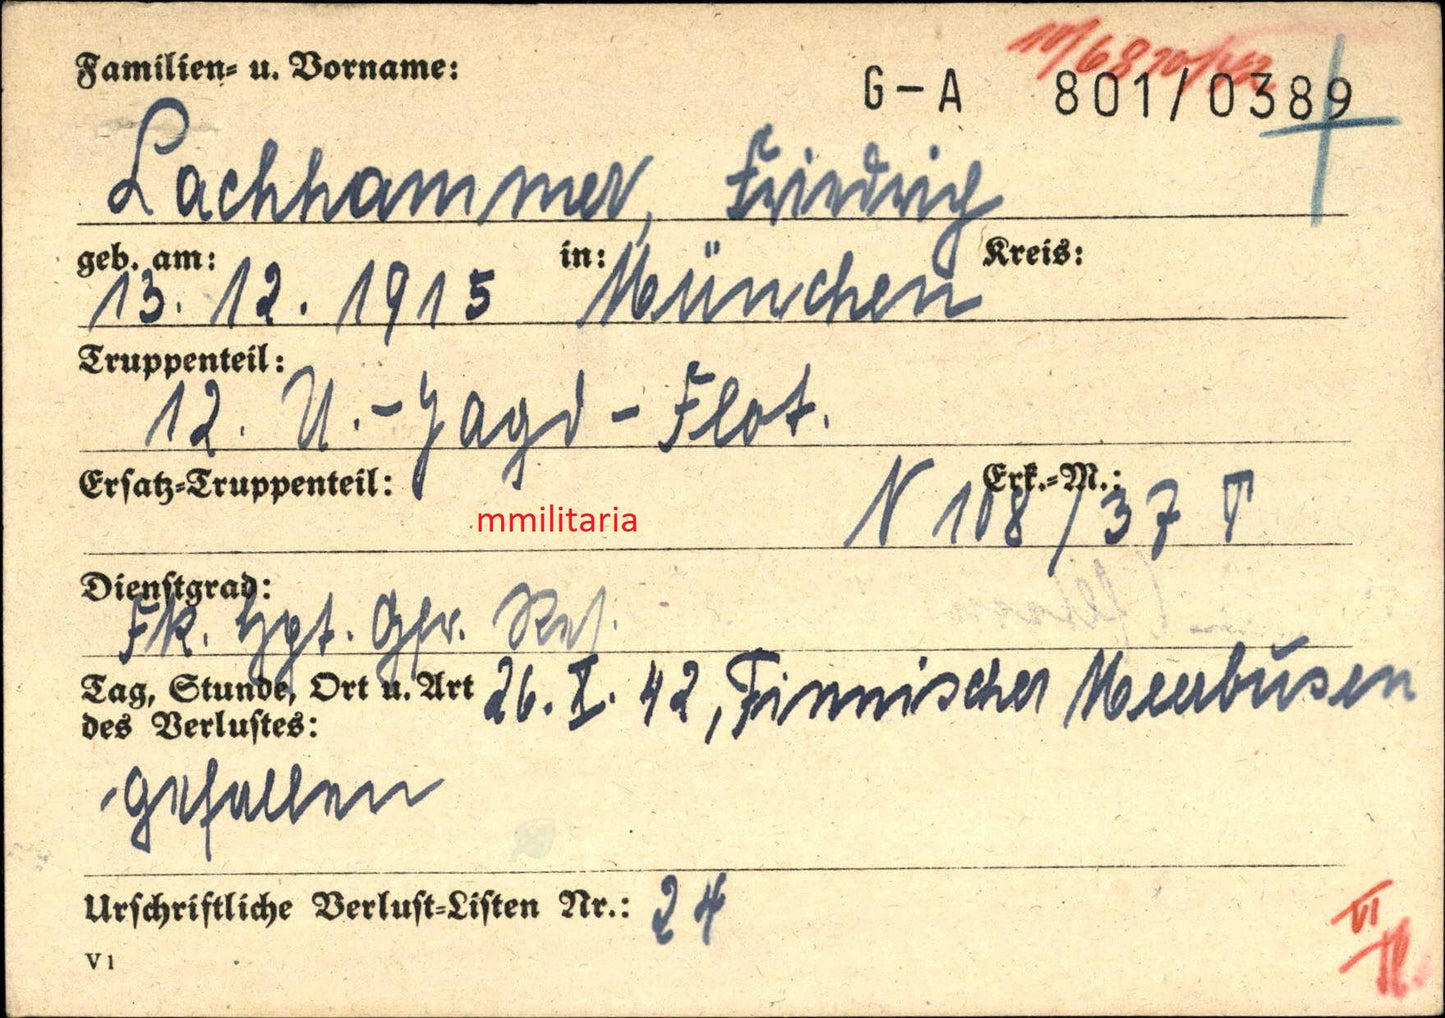 Familien- u. Vorname:
G-A 801/0389
Lachhammer, Friedrich
geb. am: in: Kreis:
13. 12. 1915 München
Truppenteil:
12. U.-Jagd-Flot.
Ersatz-Truppenteil: Erk.-M.:
mmilitaria
N 108/37 T
Dienstgrad:
Fk. Hgt. Gfr. Res.
Tag, Stunde, Ort u. Art 26. X. 42, Finnischer Meerbusen
des Verlustes:
gefallen
Urschriftliche Verlust-Listen Nr.: 24
VI
V1